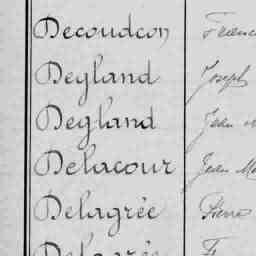 Decoudcon
Deyland Joseph
Degland Jean
Delacour Jean
Delagrée Pierre
Delagrée